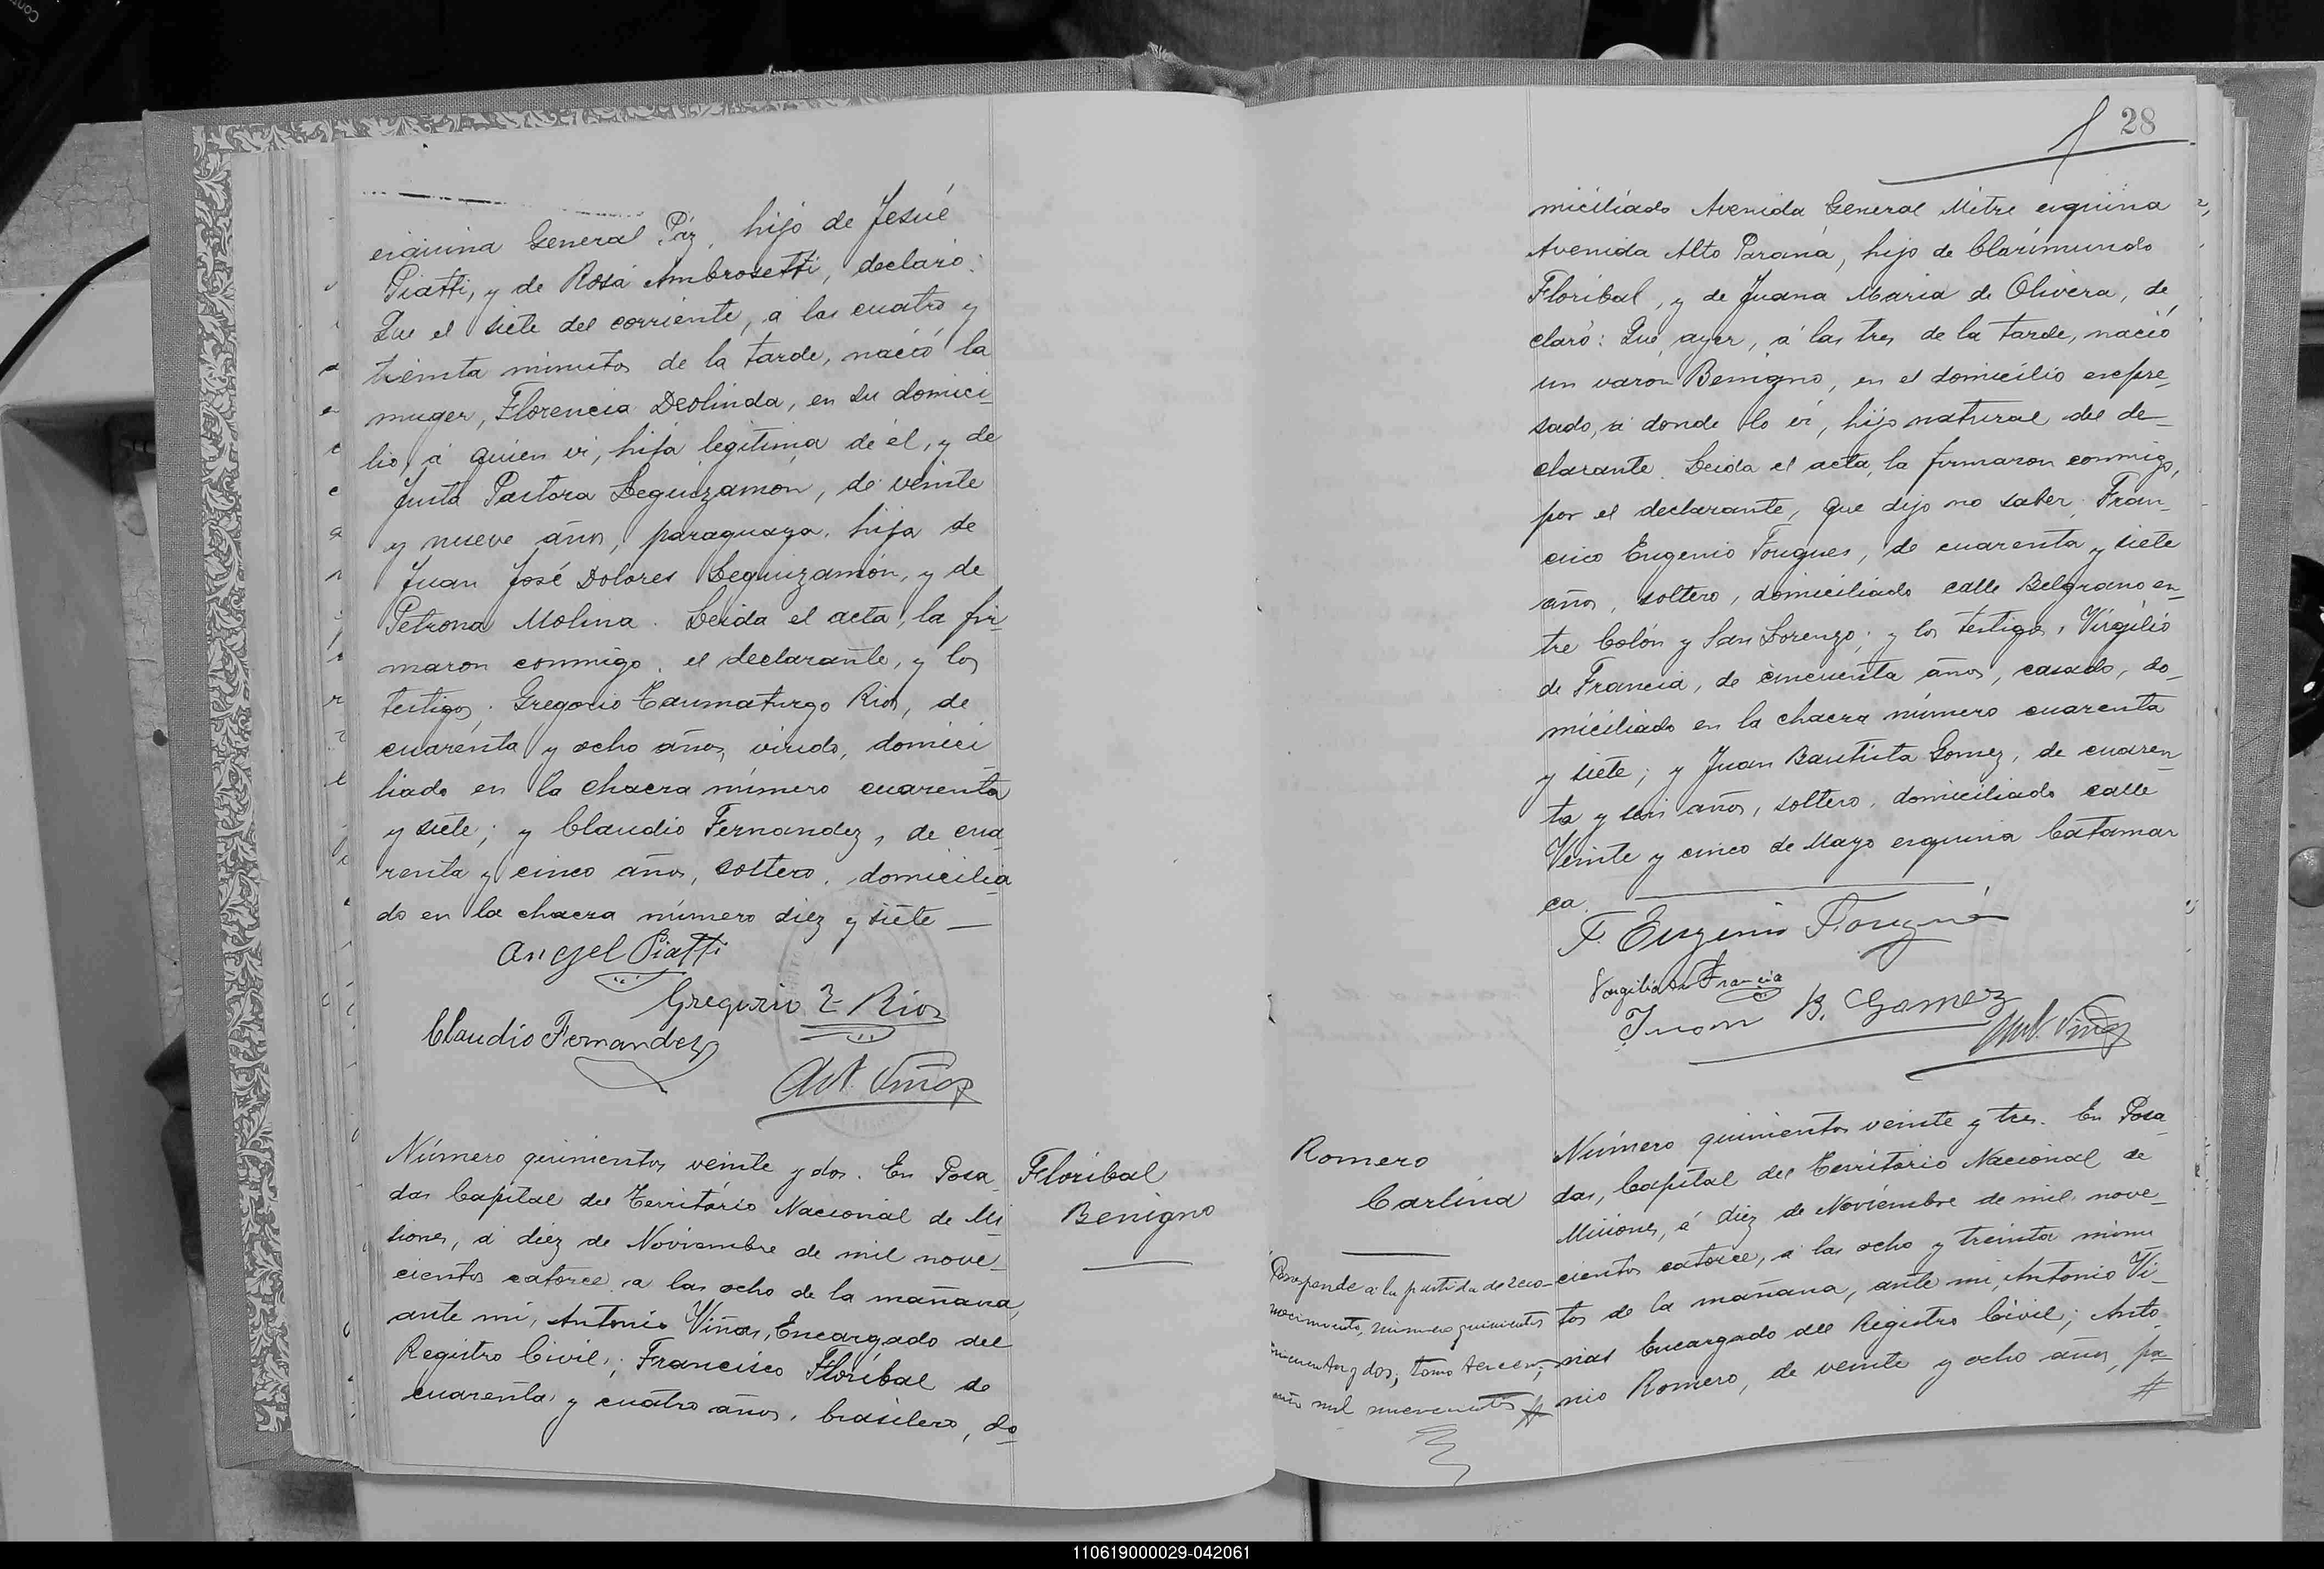 esquina General Paz, hijo de Jesué
Piatti, y de Rosa Ambrosetti, declaró:
Que el siete del corriente, a las cuatro y
treinta minutos de la tarde, nació la
muger, Florencia Deolinda, en su domici-
lio, á quien ví, hija legítima de él, y de
Justa Pastora Leguizamón, de veinte
y nueve años, paraguaya, hija de
Juan José Dolores Leguizamón, y de
Petrona Molina. Leida el acta, la fir-
maron conmigo, el declarante, y los
testigos; Gregorio Taumaturgo Rios, de
cuarenta y ocho años, viudo, domici
liado en la chacra número cuarenta
y siete; y Claudio Fernandez, de cua-
renta y cinco años, soltero, domicilia-
do en la chacra número diez y siete —
Angel Piatti
Gregorio T Rios
Claudio Fernandez
Ant. Viñas
Número quinientos veinte y dos. En Posa-
das Capital del Territorio Nacional de Mi-
siones, á diez de Noviembre de mil nove-
cientos catorce, a las ocho de la mañana,
ante mi, Antonio Viñas, Encargado del
Registro Civil; Francisco Floribal de
cuarenta y cuatro años, brasilero, do-
Floribal
Benigno
28
miciliado Avenida General Mitre esquina
Avenida Alto Paraná, hijo de Clarimundo
Floribal, y de Juana Maria de Olivera, de
claró: Que ayer, á las tres de la tarde, nació
un varon Benigno, en el domicilio expre-
sado, á donde lo ví, hijo natural del de-
clarante. Leida el acta, la firmaron conmigo,
por el declarante, que dijo no saber, Fran-
cisco Eugenio Fougues, de cuarenta y siete
años, soltero, domiciliado calle Belgrano en-
tre Colón y San Lorenzo; y los testigos, Virgilio
de Francia, de cincuenta años, casado, do-
miciliado en la chacra número cuarenta
y siete; y Juan Bautista Gomez, de cuaren-
ta y seis años, soltero, domiciliado calle
Veinte y cinco de Mayo esquina Catamar
ca.
F. Eugenio Fougué
Virgilio de Francia
Juan B. Gomez
Ant. Viñas
Romero
Carlina
Corresponde a la partida de reco-
nocimiento, número quinientos
cincuenta y dos, tomo tercero,
año mil nuevecientos #
Número quinientos veinte y tres. En Posa-
das, Capital del Territorio Nacional de
Misiones, á diez de Noviembre de mil nove-
cientos catorce, a las ocho y treinta minu
tos de la mañana, ante mi, Antonio Vi-
ñas Encargado del Registro Civil; Anto-
nio Romero, de veinte y ocho años, pa-
#
110619000029-042061